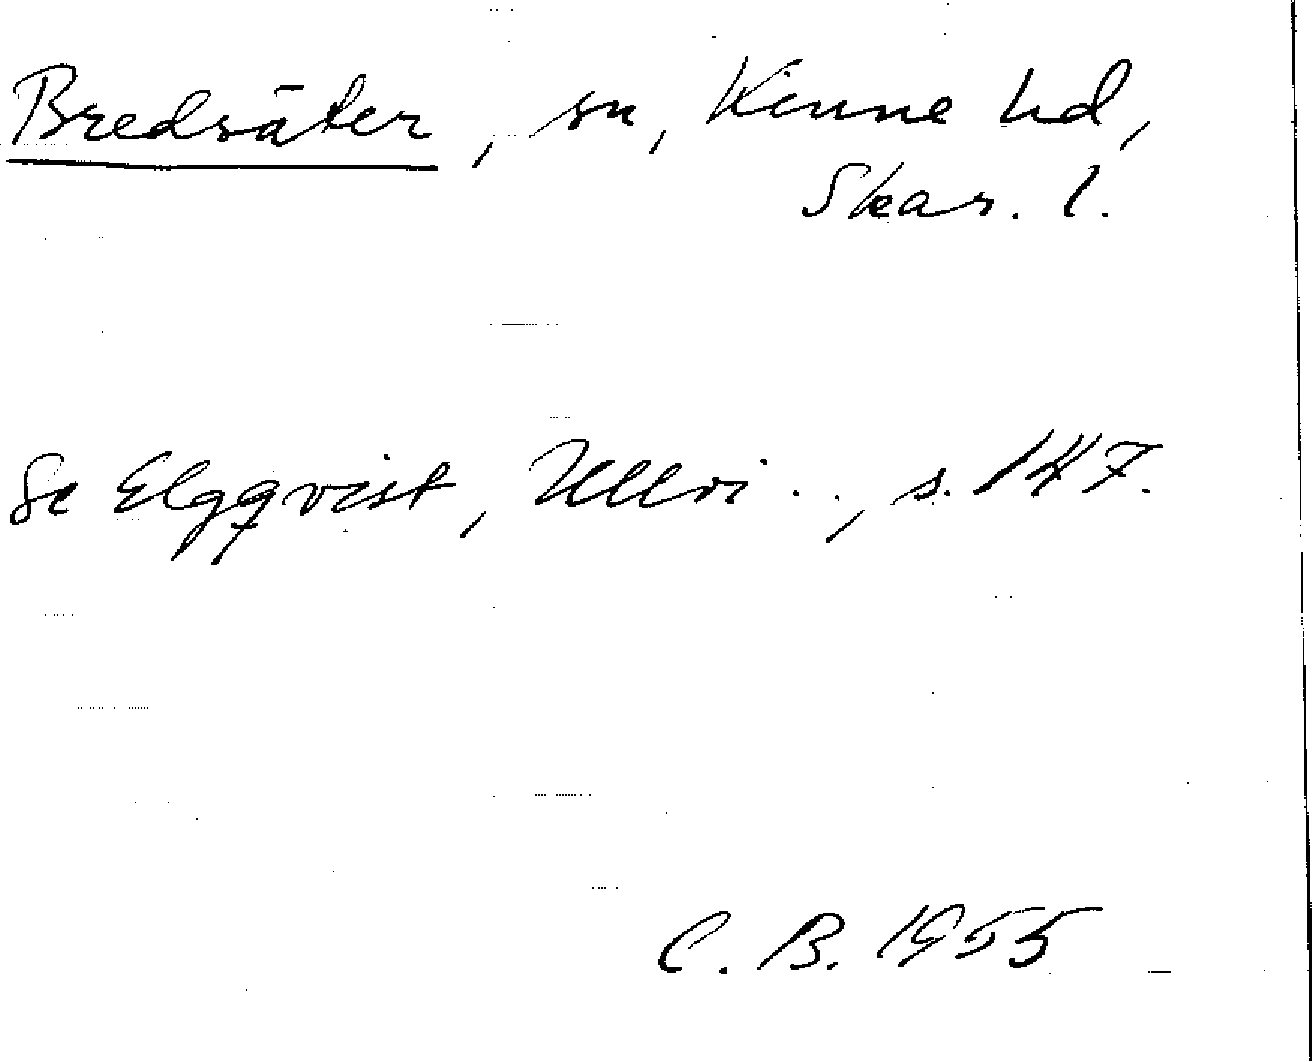 Bredsäter, sn, Kinne hd,
Skar. l.
Se Elgqvist, Ullvi . . , s. 147.
C. B. 1955